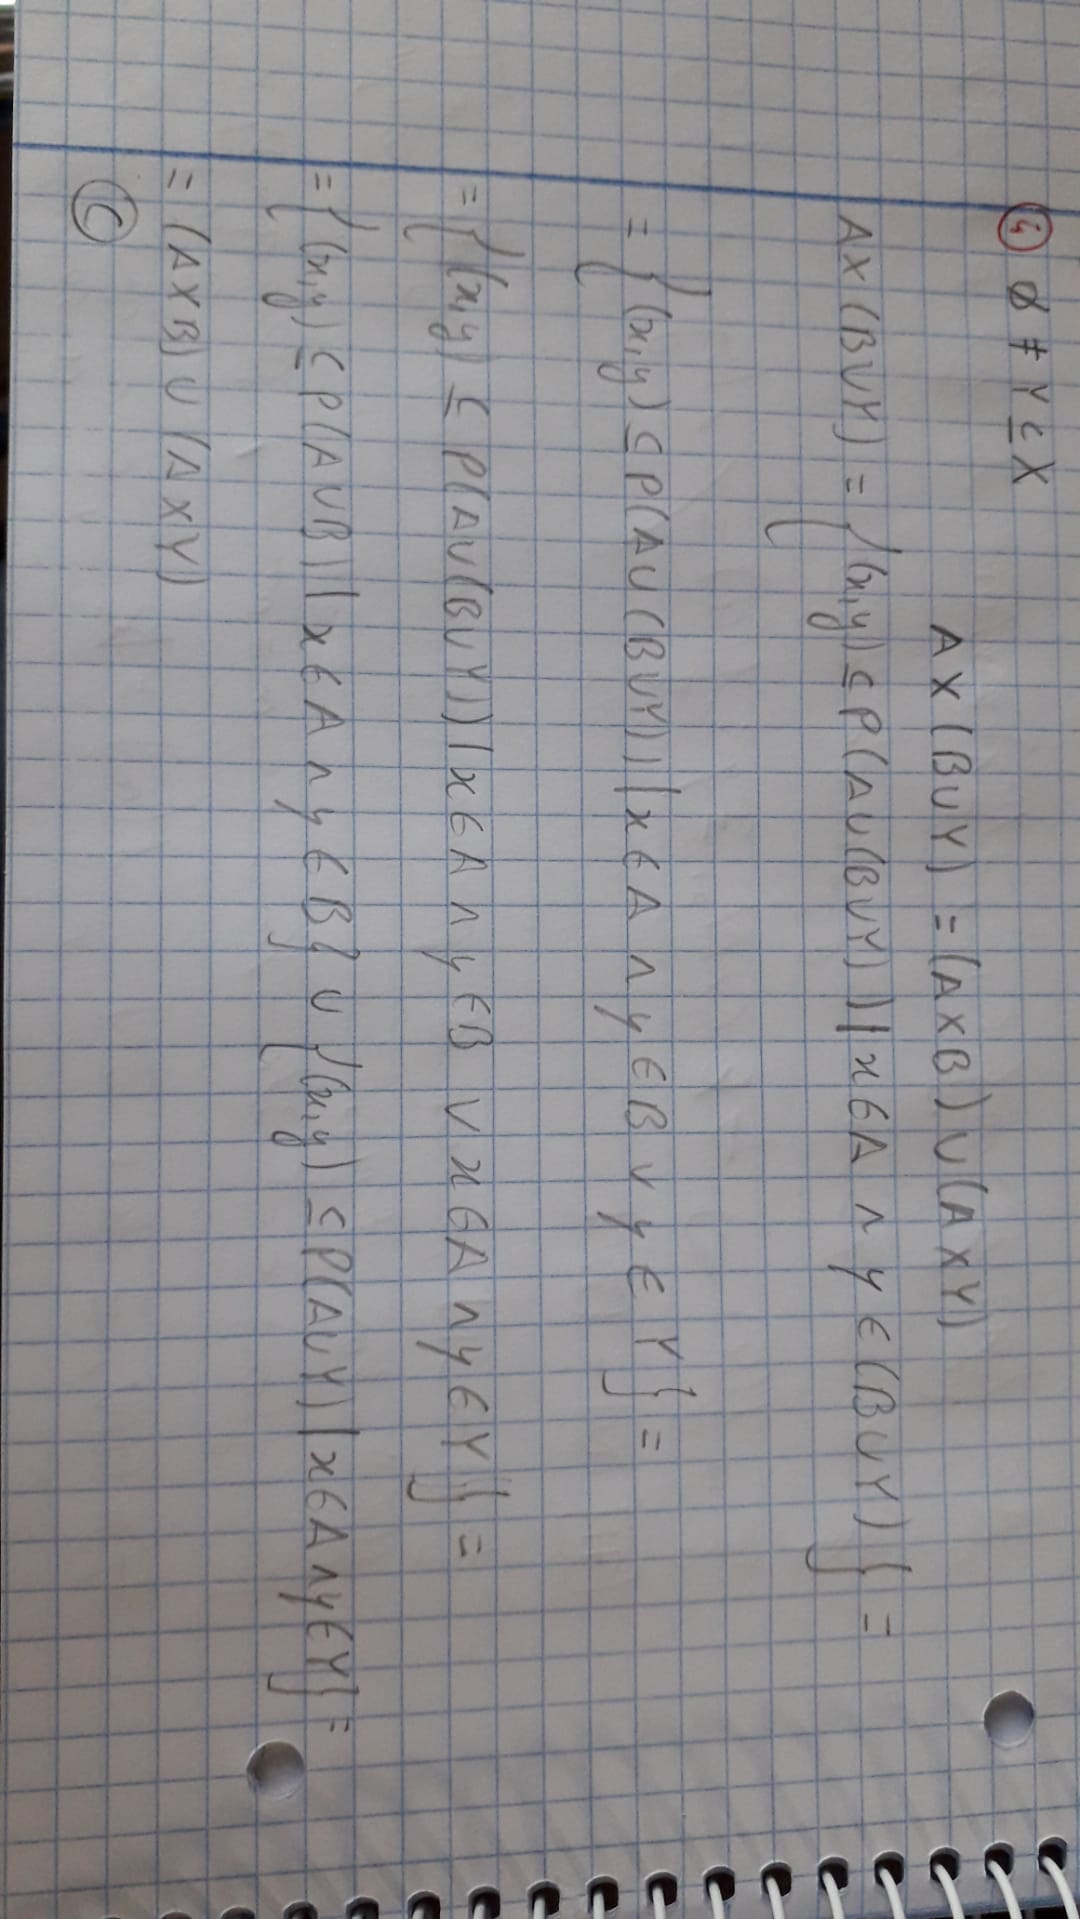 i) ∅ ≠ Y ⊆ X
A×(B∪Y) = (A×B)∪(A×Y)
A×(B∪Y) = {(x,y)⊆P(A∪(B∪Y))|x∈A ∧ y∈(B∪Y)} =
= {(x,y)⊆P(A∪(B∪Y))|x∈A ∧ y∈B ∨ y∈Y} =
= {(x,y) ⊆ P(A∪(B∪Y))|x∈A ∧ y∈B ∨ x∈A ∧ y∈Y} =
= {(x,y)⊆P(A∪B)|x∈A ∧ y∈B} ∪ {(x,y)⊆P(A∪Y)|x∈A ∧ y∈Y} =
= (A×B)∪(A×Y)
C